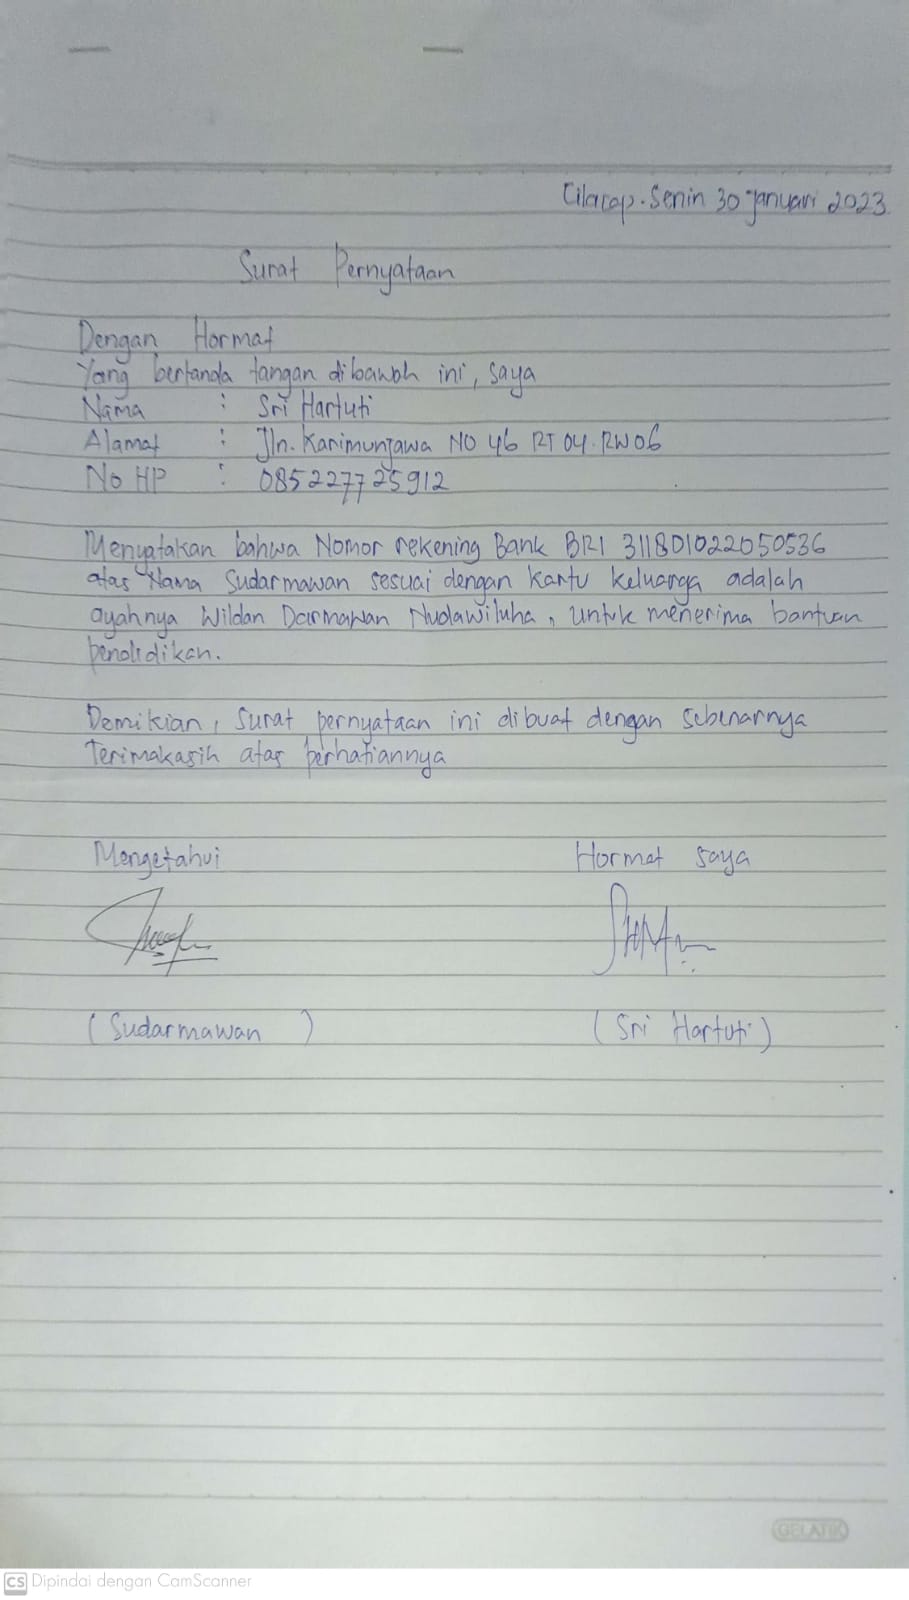 Cilacap. Senin 30 Januari 2023
Surat Pernyataan
Dengan Hormat
Yang bertanda tangan dibawah ini, saya
Nama : Sri Hartuti
Alamat : Jln. Karimunjawa NO 46 RT 04. RW 06
No HP : 085227725912
Menyatakan bahwa Nomor rekening Bank BRI 311801022050536
atas Nama Sudarmawan sesuai dengan kartu keluarga adalah
ayahnya Wildan Darmawan, untuk menerima bantuan
pendidikan.
Demikian, surat pernyataan ini dibuat dengan sebenarnya
Terimakasih atas perhatiannya
Mengetahui Hormat saya
(Sudarmawan) (Sri Hartuti)
GELATIK
CS Dipindai dengan CamScanner